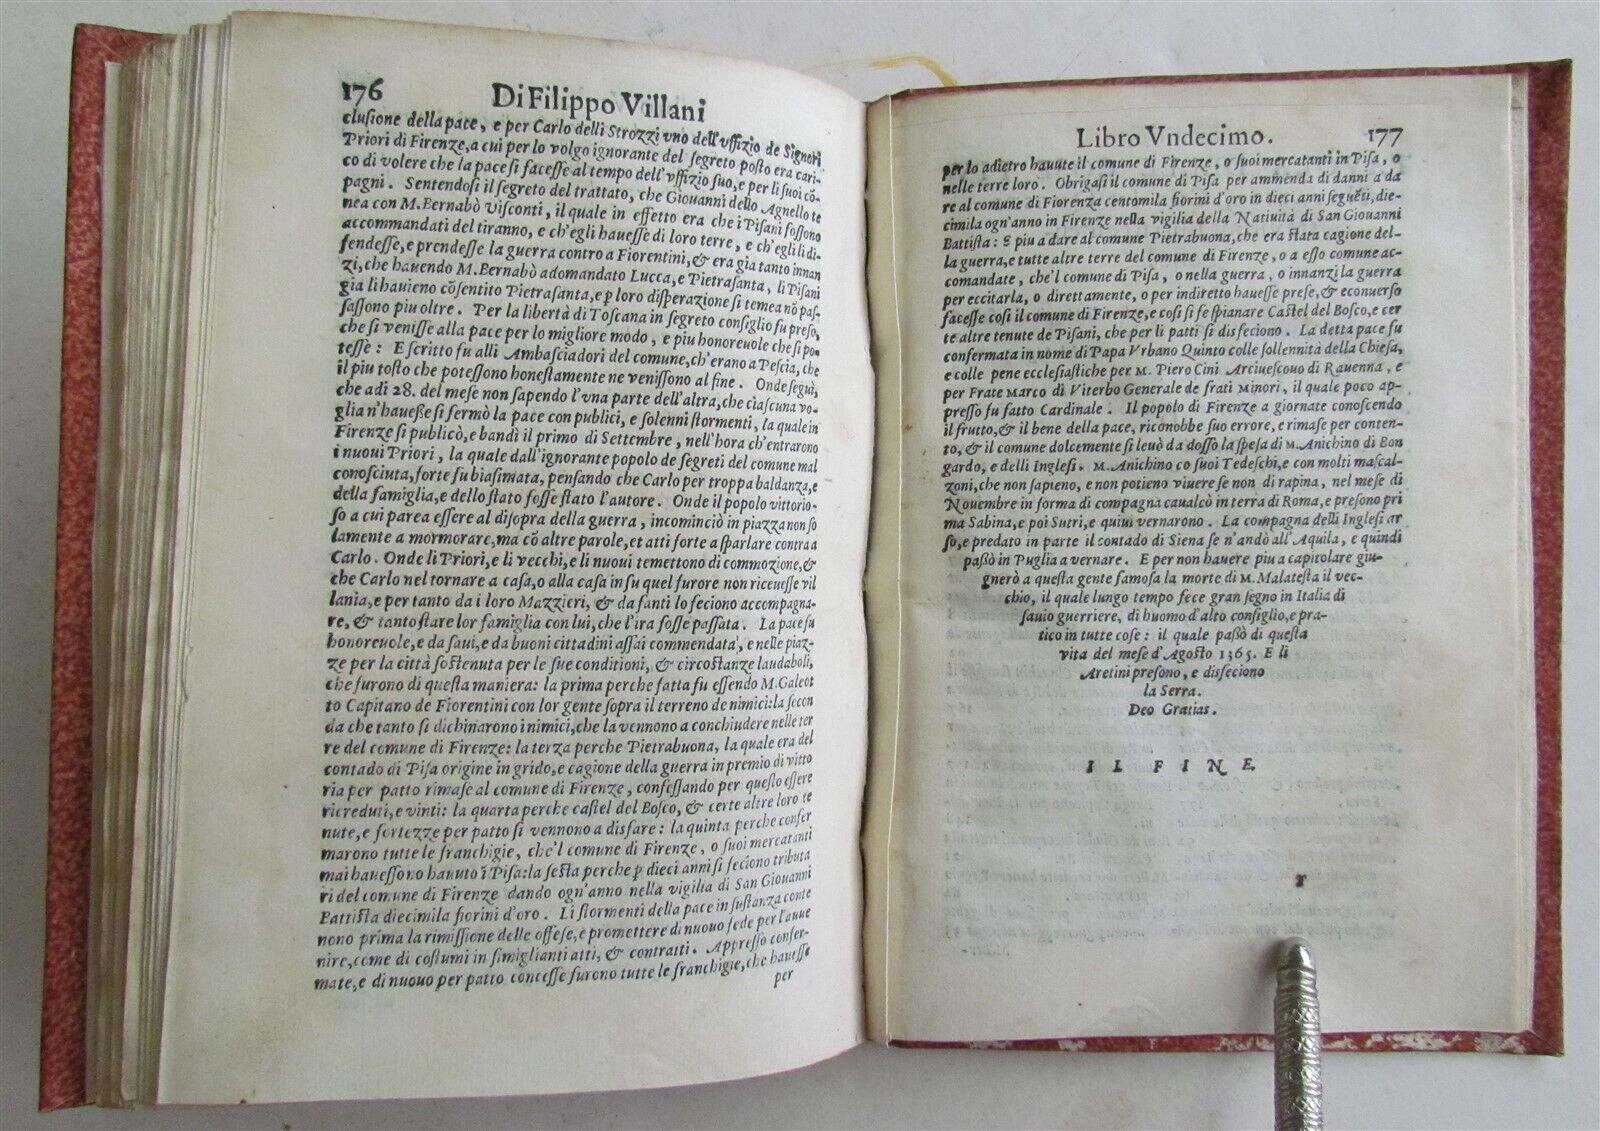 176 Di Filippo Villani
clusione della pace, e per Carlo delli Strozzi vno dell'vffizio de Signori
Priori di Firenze, a cui per lo volgo ignorante del segreto posto era cari-
co di volere che la pace si facesse al tempo dell'vffizio suo, e per li suoi cõ-
pagni. Sentendosi il segreto del trattato, che Giouanni dello Agnello te
nea con M. Bernabò Visconti, il quale in effetto era che i Pisani fossono
accommandati del tiranno, e ch'egli hauesse di loro terre, e ch'egli li di-
fendesse, e prendesse la guerra contro a Fiorentini, & era gia tanto innan
zi, che hauendo M. Bernabò adomandato Lucca, e Pietrasanta, li Pisani
gia li hauieno cõsentito Pietrasanta, e ꝑ loro disperazione si temea nõ pas-
sassono piu oltre. Per la libertà di Toscana in segreto consiglio fu preso,
che si venisse alla pace per lo migliore modo, e piu honoreuole che si po-
tesse: E scritto fu alli Ambasciadori del comune, ch'erano a Pescia, che
il piu tosto che potessono honestamente ne venissono al fine. Onde seguì,
che adi 28. del mese non sapendo l'vna parte dell'altra, che ciascuna vo-
glia n'hauesse si fermò la pace con publici, e solenni stormenti, la quale in
Firenze si publicò, e bandì il primo di Settembre, nell'hora ch'entrarono
i nuoui Priori, la quale dall'ignorante popolo de segreti del comune mal
conosciuta, forte fu biasimata, pensando che Carlo per troppa baldanza, e
della famiglia, e dello stato fosse stato l'autore. Onde il popolo vittorio-
so a cui parea essere al disopra della guerra, incominciò in piazza non so
lamente a mormorare, ma cõ altre parole, et atti forte a sparlare contra a
Carlo. Onde li Priori, e li vecchi, e li nuoui temettono di commozione, &
che Carlo nel tornare a casa, o alla casa in su quel furore non riceuesse vil
lania, e per tanto da i loro Mazzieri, & da fanti lo feciono accompagna-
re, & tanto stare lor famiglia con lui, che l'ira fosse passata. La pace fu
honoreuole, e da saui, e da buoni cittadini assai commendata, e nelle piaz-
ze per la città sostenuta per le sue conditioni, & circostanze laudaboli,
che furono di questa maniera: la prima perche fatta fu essendo M. Galeot
to Capitano de Fiorentini con lor gente sopra il terreno de nimici: la secon
da che tanto si dichinarono i nimici, che la vennono a conchiudere nelle ter
re del comune di Firenze: la terza perche Pietrabuona, la quale era del
contado di Pisa origine in grido, e cagione della guerra in premio di vitto
ria per patto rimase al comune di Firenze, confessando per questo essere
ricreduti, e vinti: la quarta perche castel del Bosco, & certe altre loro te
nute, e fortezze per patto si vennono a disfare: la quinta perche confer
marono tutte le franchigie, che'l comune di Firenze, o suoi mercatanti
mai hauessono hauuto ĩ Pisa: la sesta perche ꝑ dieci anni si feciono tributa
ri del comune di Firenze dando ogn'anno nella vigilia di San Giouanni
Battista diecimila fiorini d'oro. Li stormenti della pace in sustanza conte
nono prima la rimissione delle offese, e promettere di nuouo fede per l'auue
nire, come di costumi in simiglianti atti, & contratti. Appresso confer-
mate, e di nuouo per patto concesse furono tutte le franchigie, che hauesse
per
Libro Vndecimo. 177
per lo adietro hauute il comune di Firenze, o suoi mercatanti in Pisa, o
nelle terre loro. Obrigasi il comune di Pisa per ammenda di danni a da
re al comune di Fiorenza centomila fiorini d'oro in dieci anni seguẽti, die-
cimila ogn'anno in Firenze nella vigilia della Natiuità di San Giouanni
Battista: & piu a dare al comune Pietrabuona, che era stata cagione del-
la guerra, e tutte altre terre del comune di Firenze, o a esso comune ac-
comandate, che'l comune di Pisa, o nella guerra, o innanzi la guerra
per eccitarla, o direttamente, o per indiretto hauesse prese, & econuerso
facesse cosi il comune di Firenze, e cosi si fe spianare Castel del Bosco, e cer
te altre tenute de Pisani, che per li patti si disfeciono. La detta pace fu
confermata in nome di Papa Vrbano Quinto colle sollennità della Chiesa,
e colle pene ecclesiastiche per M. Piero Cini Arciuescouo di Rauenna, e
per Frate Marco di Viterbo Generale de frati Minori, il quale poco ap-
presso fu fatto Cardinale. Il popolo di Firenze a giornate conoscendo
il frutto, & il bene della pace, riconobbe suo errore, e rimase per conten-
to, & il comune dolcemente si leuò da dosso la spesa di M. Anichino di Bon
gardo, e delli Inglesi. M. Anichino co suoi Tedeschi, e con molti mascal-
zoni, che non sapieno, e non potieno viuere se non di rapina, nel mese di
Nouembre in forma di compagna caualcò in terra di Roma, e presono pri
ma Sabina, e poi Sutri, e quiui vernarono. La compagna delli Inglesi ar
so, e predato in parte il contado di Siena se n'andò all'Aquila, e quindi
passò in Puglia a vernare. E per non hauere piu a capitolare giu-
gnerò a questa gente famosa la morte di M. Malatesta il vec-
chio, il quale lungo tempo fece gran segno in Italia di
sauio guerriere, di huomo d'alto consiglio, e pra-
tico in tutte cose: il quale passò di questa
vita del mese d'Agosto 1365. E li
Aretini presono, e disfeciono
la Serra.
Deo Gratias.
IL FINE.